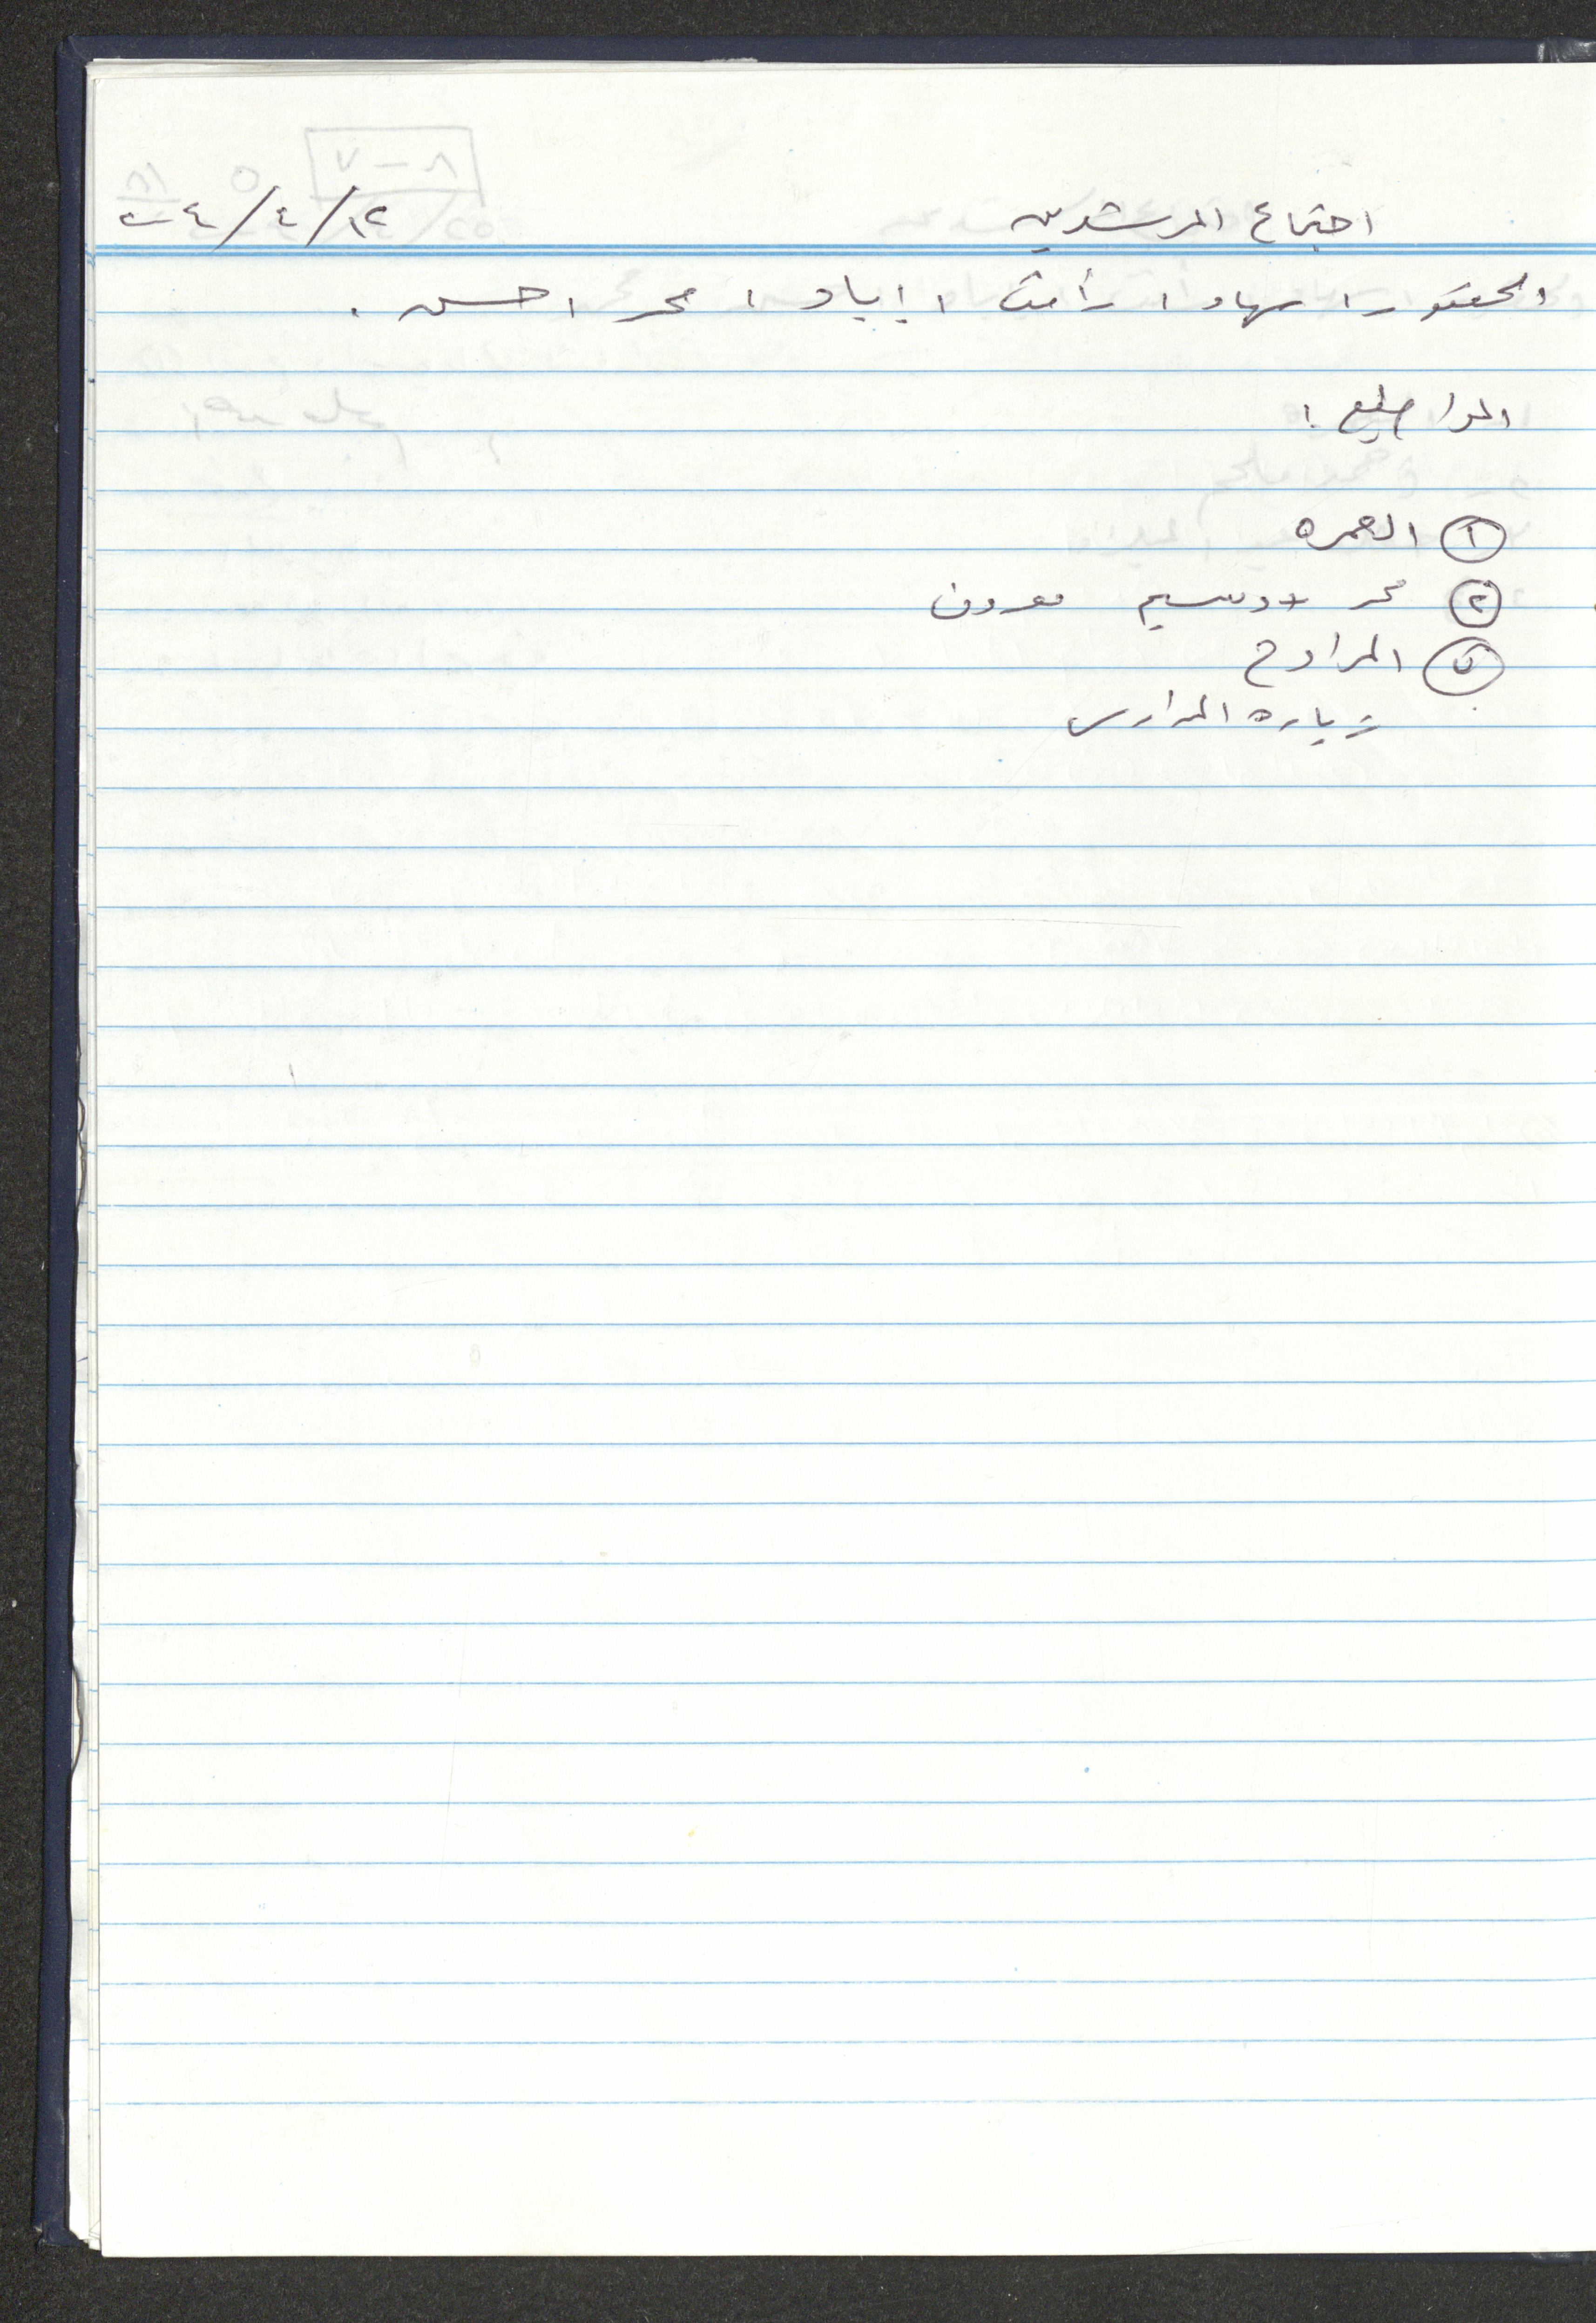 اجتماع المرشدين ١٢/٤/٢٠٠٤
الحضور، سهاد، رأفت، إياد، محمد، حسن.
المواضيع:
① العمره
② محمد + وسيم معروف
③ المراوح
زياره المدارس